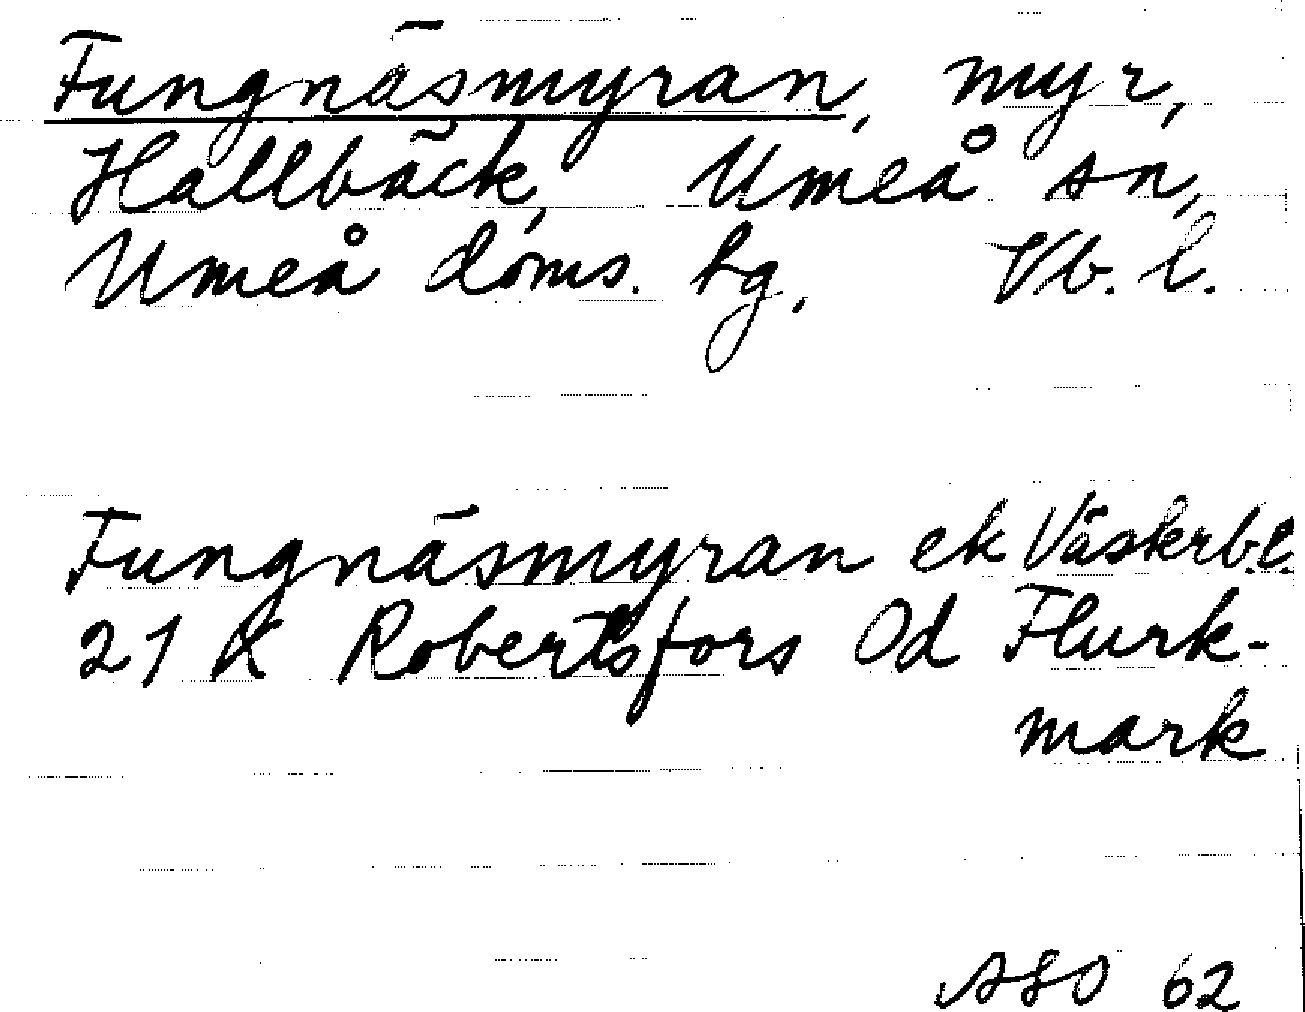 Fungnäsmyran, myr,
Hällbäck, Umeå sn,
Umeå doms. hg. Vb. l.
Fungnäsmyran ek Västerb.l.
21 K Robertsfors Od Flurk-
mark
ASO 62